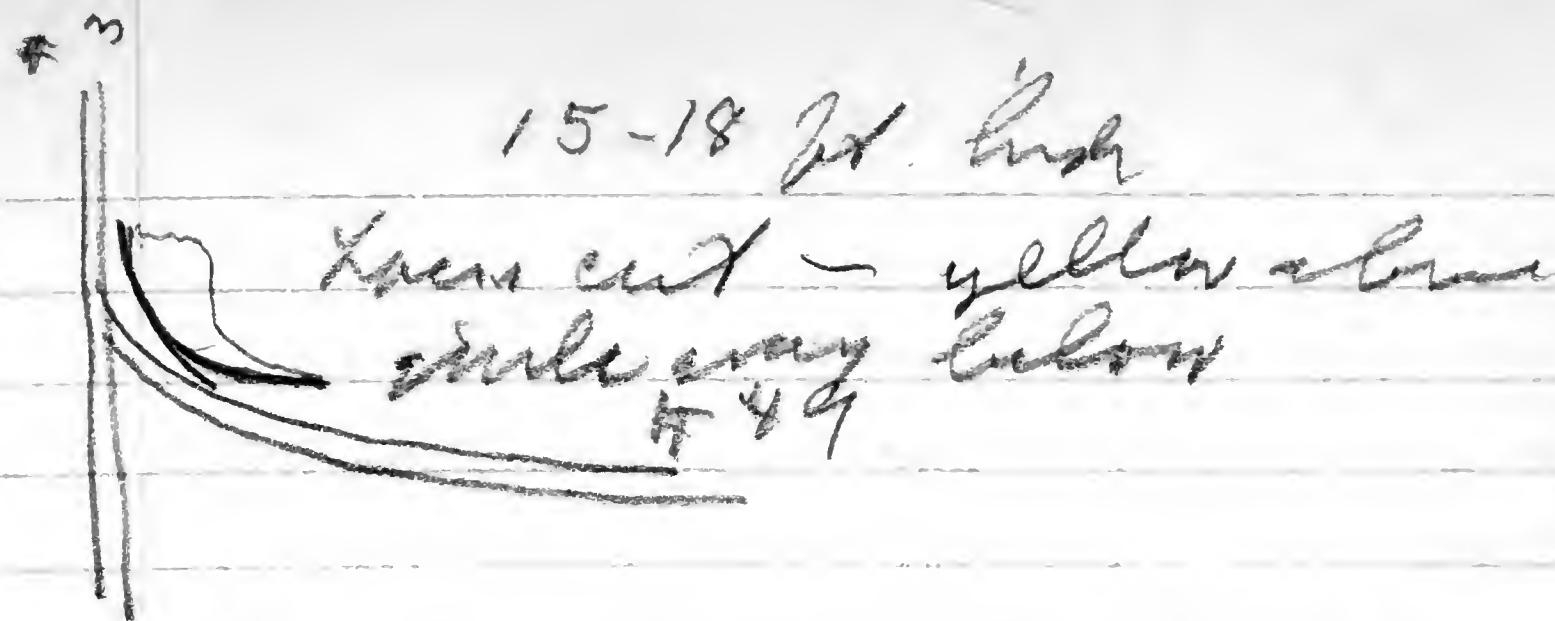 # 3
15-18 ft. high
Loess cut - yellow above
below
# 49